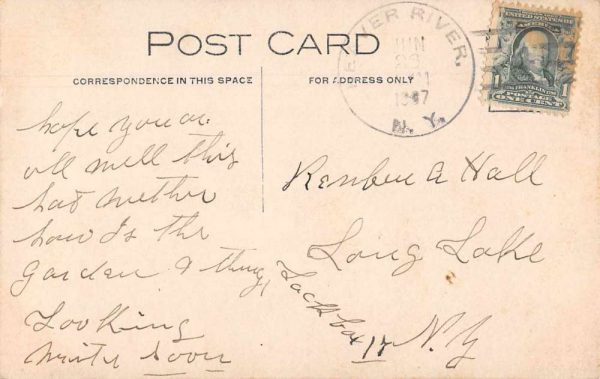 POST CARD
CORRESPONDENCE IN THIS SPACE
FOR ADDRESS ONLY
VER RIVER.
JUN
23
1907
N. Y.
UNITED STATES OF
AMERICA
1 1
FRANKLIN
POSTAGE
ONE CENT
hope you ar
all well this
hot wether
how Is the
Garden & things
Looking
write Soon
Reuben A Hall
Long Lake
Lock box 17 N.Y